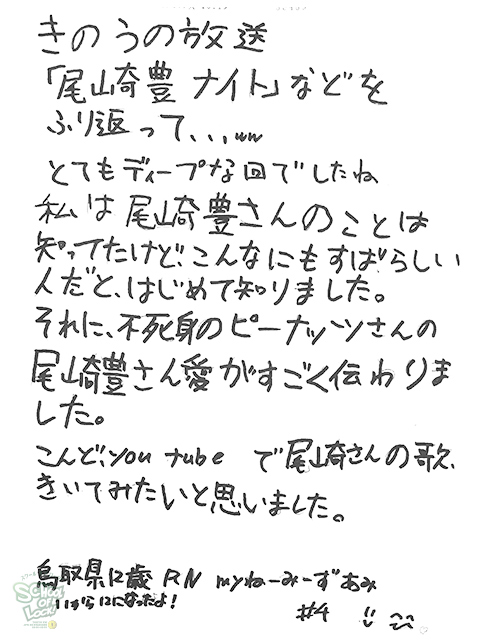 きのうの放送
「尾崎豊ナイト」などを
ふり返って、、、ww
とてもディープな回でしたね
私は尾崎豊さんのことは
知ってたけど、こんなにもすばらしい
人だと、はじめて知りました。
それに、不死身のピーナッツさんの
尾崎豊さん愛がすごく伝わりま
した。
こんど、you tubeで尾崎さんの歌、
きいてみたいと思いました。
鳥取県12歳 RN myねーみーずあみ
11から12になったよ!
#4
SCHOOL OF LOCK!